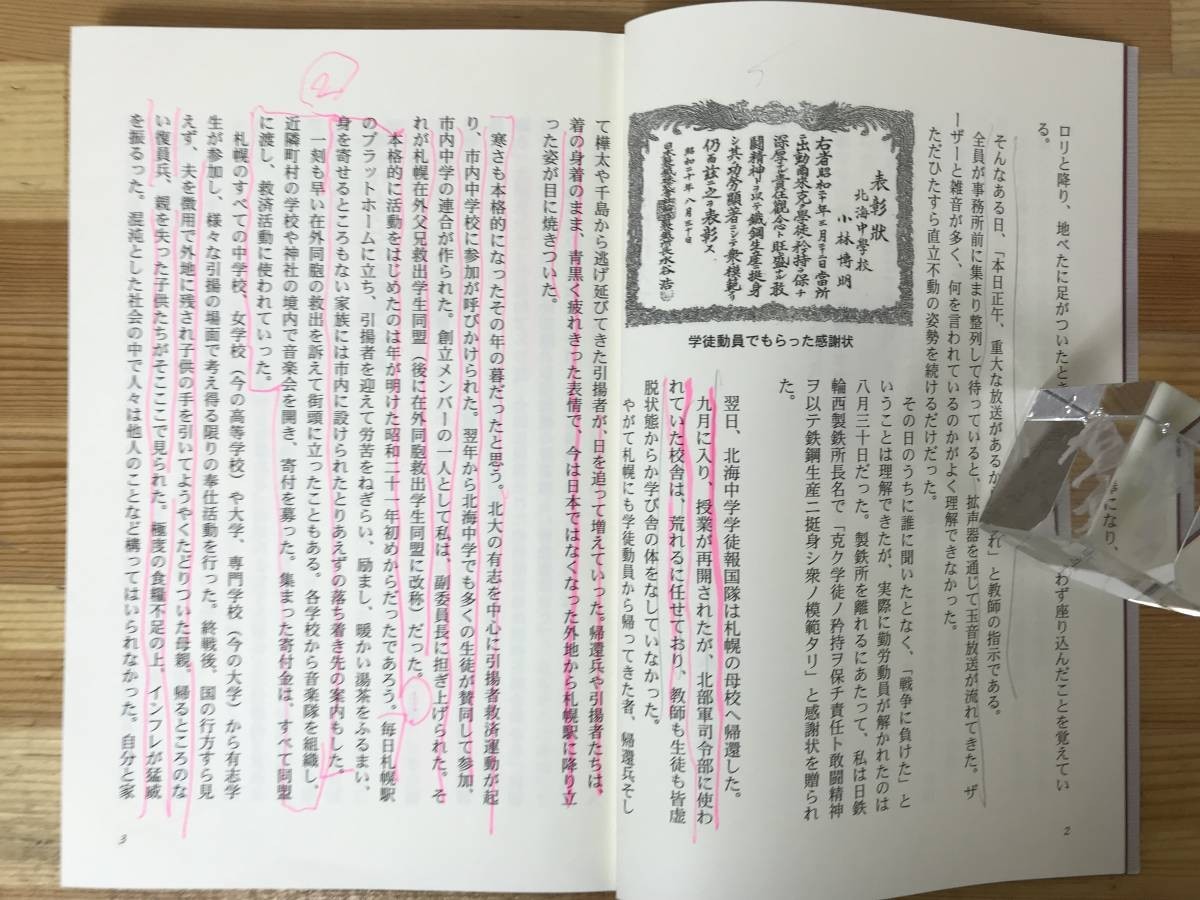 ロリと降り、地べたに足がついたとき
わず座り込んだことを覚えてい
る。
そんなある日、「本日正午、重大な放送があるか
れ」と教師の指示である。
全員が事務所前に集まり整列して待っていると、拡声器を通じて玉音放送が流れてきた。ザ
ーザーと雑音が多く、何を言われているのかがよく理解できなかった。
ただひたすら直立不動の姿勢を続けるだけだった。
その日のうちに誰に聞いたとなく、「戦争に負けた」と
いうことは理解できたが、実際に勤労動員が解かれたのは
八月三十日だった。製鉄所を離れるにあたって、私は日鉄
輪西製鉄所長名で「克ク学徒ノ矜持ヲ保チ責任ト敢闘精神
ヲ以テ鉄鋼生産ニ挺身シ衆ノ模範タリ」と感謝状を贈られ
た。
表彰狀
北海中學校
小林博明
右者昭和二十年三月二十二日當所
ニ出動爾来克ク學徒ノ矜持ヲ保チ
深厚ナル責任觀念ト旺盛ナル敢
鬪精神トヲ以テ鐵鋼生産ニ挺身
シ其ノ功勞顯著ニシテ衆ノ模範タリ
仍而茲ニ之ヲ表彰ス
昭和二十年八月三十日
学徒動員でもらった感謝状
翌日、北海中学学徒報国隊は札幌の母校へ帰還した。
九月に入り、授業が再開されたが、北部軍司令部に使わ
れていた校舎は、荒れるに任せており、教師も生徒も皆虚
脱状態からか学び舎の体をなしていなかった。
やがて札幌にも学徒動員から帰ってきた者、帰還兵そし
2
て樺太や千島から逃げ延びてきた引揚者が、日を追って増えていった。帰還兵や引揚者たちは、
着の身着のまま、青黒く疲れきった表情で、今は日本ではなくなった外地から札幌駅に降り立
った姿が目に焼きついた。
寒さも本格的になったその年の暮だったと思う。北大の有志を中心に引揚者救済運動が起
り、市内中学校に参加が呼びかけられた。翌年から北海中学でも多くの生徒が賛同して参加、
市内中学の連合が作られた。創立メンバーの一人として私は、副委員長に担ぎ上げられた。そ
れが札幌在外父兄救出学生同盟（後に在外同胞救出学生同盟に改称）だった。
本格的に活動をはじめたのは年が明けた昭和二十一年初めからだったであろう。毎日札幌駅
のプラットホームに立ち、引揚者を迎えて労苦をねぎらい、励まし、暖かい湯茶をふるまい、
身を寄せるところもない家族には市内に設けられたとりあえずの落ち着き先の案内もした。
一刻も早い在外同胞の救出を訴えて街頭に立ったこともある。各学校から音楽隊を組織し、
近隣町村の学校や神社の境内で音楽会を開き、寄付を募った。集まった寄付金は、すべて同盟
に渡し、救済活動に使われていった。
札幌のすべての中学校、女学校（今の高等学校）や大学、専門学校（今の大学）から有志学
生が参加し、様々な引揚の場面で考え得る限りの奉仕活動を行った。終戦後、国の行方すら見
えず、夫を徴用で外地に残され子供の手を引いてようやくたどりついた母親。帰るところのな
い復員兵、親を失った子供たちがそこここで見られた。極度の食糧不足の上、インフレが猛威
を振るった。混沌とした社会の中で人々は他人のことなど構ってはいられなかった。自分と家
3
2